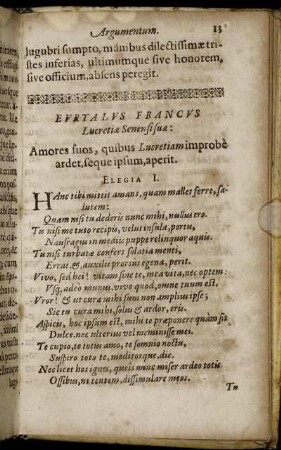 Argumentum. 13
lugubri sumpto, manibus dilectissimæ tri-
stes inferias, ultimumque sive honorem,
sive officium, absens peregit.
EVRYALVS FRANCVS
Lucretiæ Senensi suæ:
Amores suos, quibus Lucretiam improbè
ardet, seque ipsum, aperit.
ELEGIA I.
HAnc tibi mittit amans, quam mallet ferre, sa-
lutem:
Quam nisi tu dederis nunc mihi, nullus ero.
Tu nisi me tuto recipis, velut insula, portu,
Naufragus in mediis puppe relinquor aquis.
Tu nisi turbatæ confers solatia menti,
Errat, & auxilii prorsus egena, perit.
Vivo, sed hei! vitam sine te, mea vita, nec optem:
Usq́, adeo munus. vivo quod, omne tuum est.
Vror! & ut cura mihi sum non amplius ipse;
Sic tu cura mihi, solus & ardor, eris.
Aspicis, hoc ipsum est, mihi te præponere quàm sit
Dulce. nec ulterius vel meminisse mei.
Te cupio, te totus amo, te somnio noctu,
Suspiro toto te, meditorque, die.
Nec licet hos ignes, queis nunc miser ardeo totis
Ossibus, ut tentem, dissimulare meos.
Tu